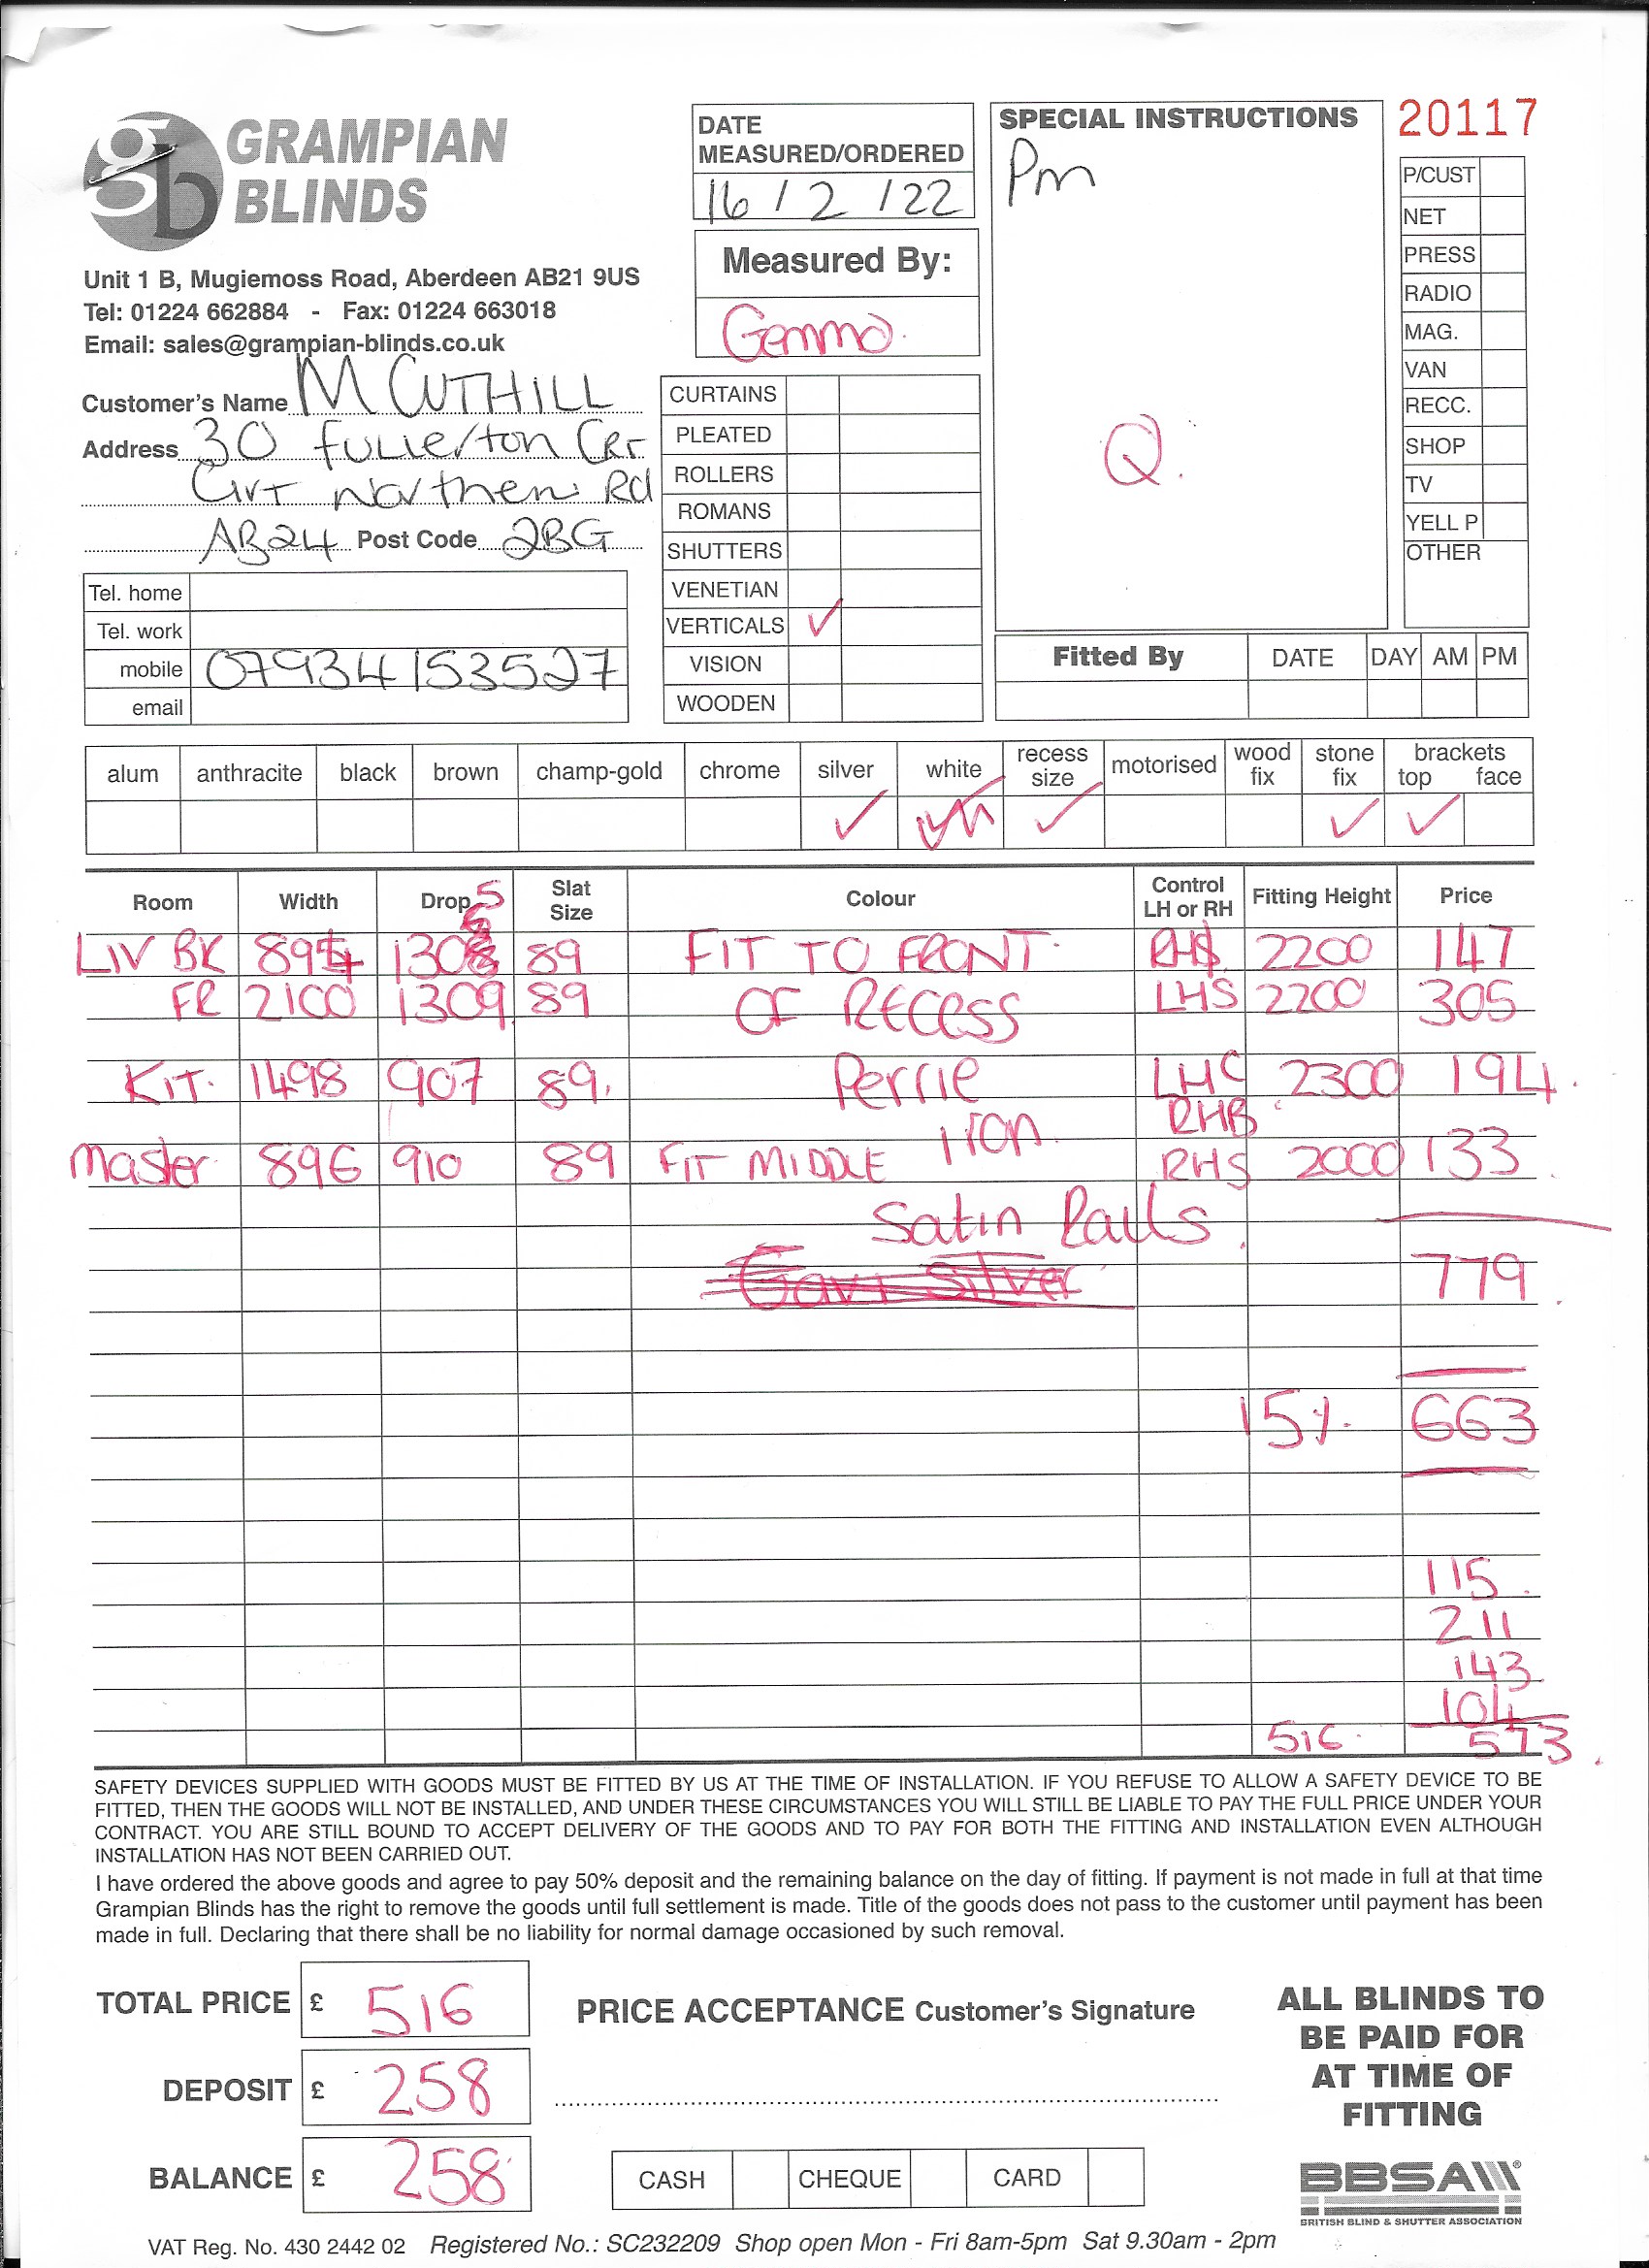 GRAMPIAN
BLINDS
Unit 1 B, Mugiemoss Road, Aberdeen AB21 9US
Tel: 01224 662884 - Fax: 01224 663018
Email: sales@grampian-blinds.co.uk
Customer's Name M CUTHILL
Address 30 Fullerton Crt
Grt Northen Rd
AB24 Post Code 2BG
Tel. home
Tel. work
mobile 07934153527
email
DATE
MEASURED/ORDERED
16 / 2 / 22
Measured By:
Gemma.
CURTAINS
PLEATED
ROLLERS
ROMANS
SHUTTERS
VENETIAN
VERTICALS ✓
VISION
WOODEN
SPECIAL INSTRUCTIONS
Pm
Q.
20117
P/CUST
NET
PRESS
RADIO
MAG.
VAN
RECC.
SHOP
TV
YELL P
OTHER
Fitted By DATE DAY AM PM
alum anthracite black brown champ-gold chrome silver white recess size motorised wood fix stone fix brackets top face
✓ ✓ ✓ ✓
Room Width Drop Slat Size Colour Control LH or RH Fitting Height Price
LIV BK 895 1305 89 FIT TO FRONT RHS 2200 147
FR 2100 1309 89 OF RECESS LHS 2200 305
KIT. 1498 907 89. Perrie LHC 2300 194.
Iron RHB
Master 896 910 89 FIT MIDDLE RHS 2000 133
Satin Rails
Silver 779
15% 663
115
211
143
104
516. 573
SAFETY DEVICES SUPPLIED WITH GOODS MUST BE FITTED BY US AT THE TIME OF INSTALLATION. IF YOU REFUSE TO ALLOW A SAFETY DEVICE TO BE
FITTED, THEN THE GOODS WILL NOT BE INSTALLED, AND UNDER THESE CIRCUMSTANCES YOU WILL STILL BE LIABLE TO PAY THE FULL PRICE UNDER YOUR
CONTRACT. YOU ARE STILL BOUND TO ACCEPT DELIVERY OF THE GOODS AND TO PAY FOR BOTH THE FITTING AND INSTALLATION EVEN ALTHOUGH
INSTALLATION HAS NOT BEEN CARRIED OUT.
I have ordered the above goods and agree to pay 50% deposit and the remaining balance on the day of fitting. If payment is not made in full at that time
Grampian Blinds has the right to remove the goods until full settlement is made. Title of the goods does not pass to the customer until payment has been
made in full. Declaring that there shall be no liability for normal damage occasioned by such removal.
TOTAL PRICE £ 516
DEPOSIT £ 258
BALANCE £ 258
PRICE ACCEPTANCE Customer's Signature
CASH CHEQUE CARD
ALL BLINDS TO
BE PAID FOR
AT TIME OF
FITTING
BBSA
BRITISH BLIND & SHUTTER ASSOCIATION
VAT Reg. No. 430 2442 02 Registered No.: SC232209 Shop open Mon - Fri 8am-5pm Sat 9.30am - 2pm